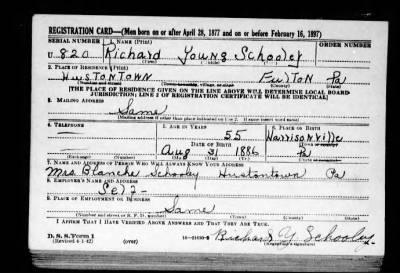 REGISTRATION CARD—(Men born on or after April 28, 1877 and on or before February 16, 1897)
SERIAL NUMBER 1. NAME (Print) ORDER NUMBER
U 820 Richard Young Schooley
(First) (Middle) (Last)
2. PLACE OF RESIDENCE (Print)
Hustontown Fulton Pa
(County) (State)
[THE PLACE OF RESIDENCE GIVEN ON THE LINE ABOVE WILL DETERMINE LOCAL BOARD
JURISDICTION; LINE 2 OF REGISTRATION CERTIFICATE WILL BE IDENTICAL]
3. MAILING ADDRESS
Same
[Mailing address if other than place indicated on line 2. If same insert word same]
4. TELEPHONE 5. AGE IN YEARS 6. PLACE OF BIRTH
55 Harrisonville
DATE OF BIRTH (Town or county)
Aug 31 1886 Pa
(Exchange) (Number) (Mo.) (Day) (Yr.) (State or country)
7. NAME AND ADDRESS OF PERSON WHO WILL ALWAYS KNOW YOUR ADDRESS
Mrs. Blanche Schooley Hustontown Pa
8. EMPLOYER'S NAME AND ADDRESS
Self-
9. PLACE OF EMPLOYMENT OR BUSINESS
Same
(Number and street or R. F. D. number) (Town) (County) (State)
I AFFIRM THAT I HAVE VERIFIED ABOVE ANSWERS AND THAT THEY ARE TRUE.
D. S. S. Form 1
(Revised 4-1-42) (over) Richard Y. Schooley
(Registrant's signature)